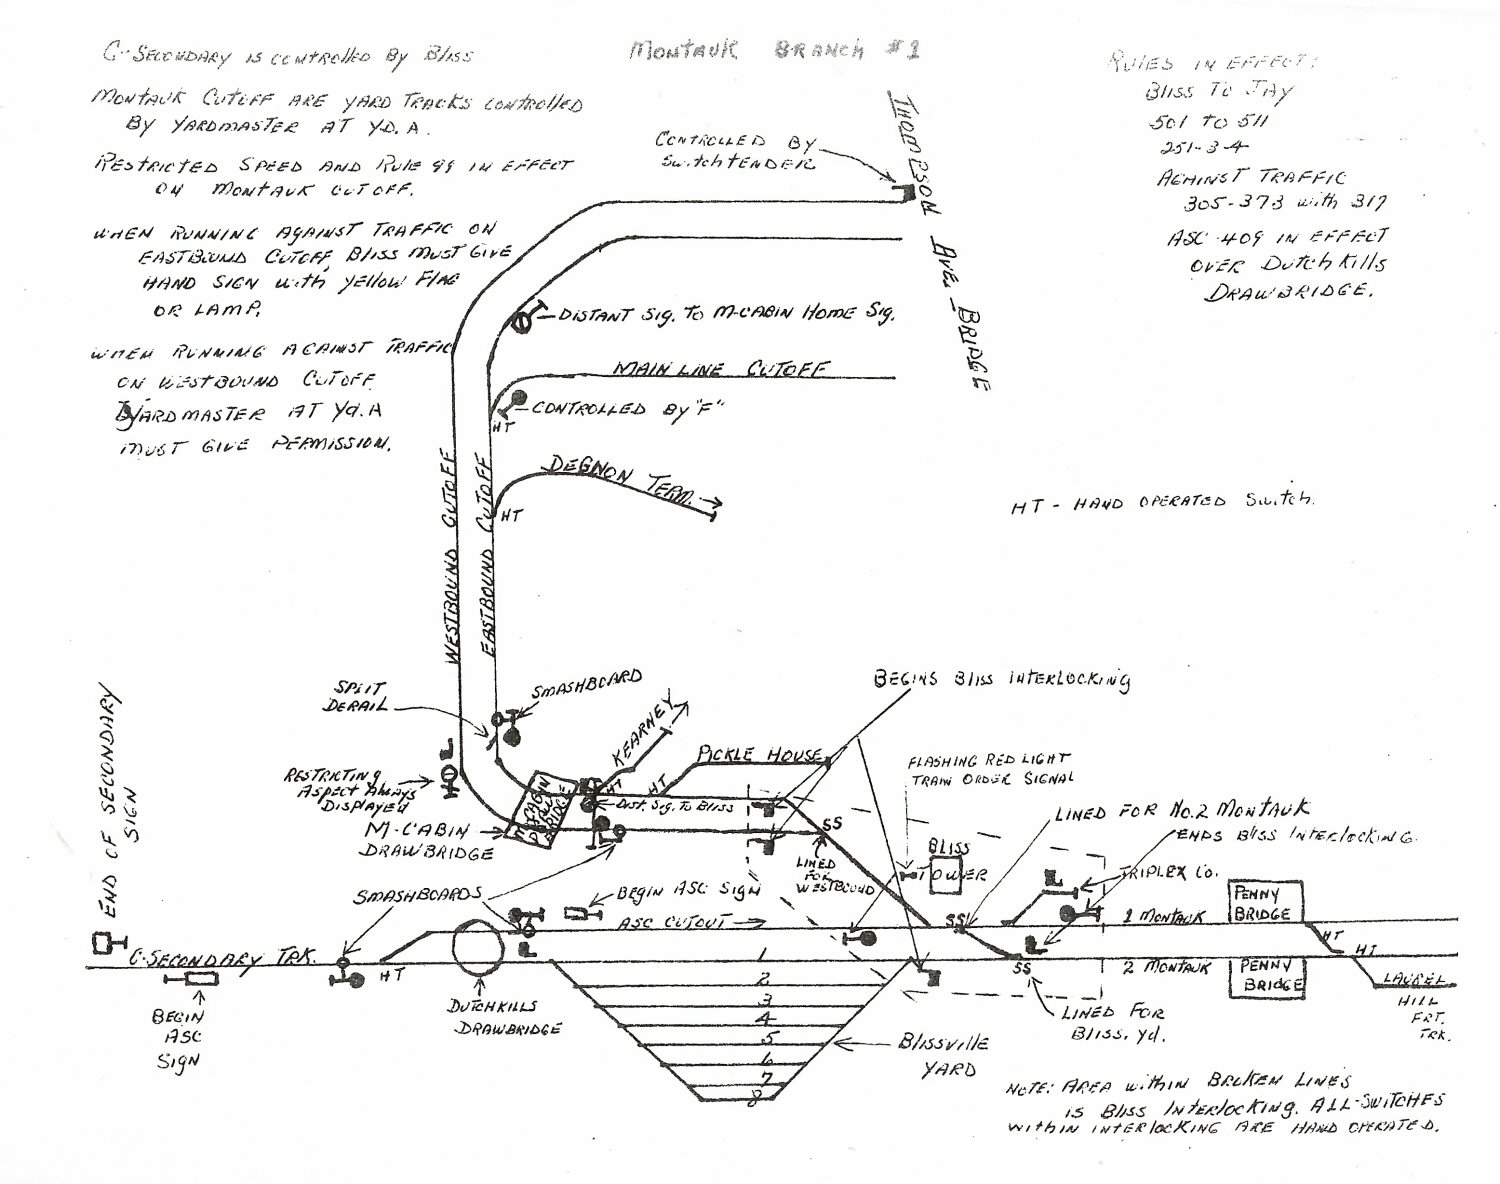 MONTAUK BRANCH #1
C-SECONDARY IS CONTROLLED BY BLISS
MONTAUK CUTOFF ARE YARD TRACKS CONTROLLED
BY YARDMASTER AT YD. A.
RESTRICTED SPEED AND RULE 99 IN EFFECT
ON MONTAUK CUTOFF.
WHEN RUNNING AGAINST TRAFFIC ON
EASTBOUND CUTOFF, BLISS MUST GIVE
HAND SIGN WITH YELLOW FLAG
OR LAMP.
WHEN RUNNING AGAINST TRAFFIC
ON WESTBOUND CUTOFF
YARDMASTER AT Yd. A
MUST GIVE PERMISSION.
RULES IN EFFECT:
BLISS TO JAY
501 TO 511
251-3-4
AGAINST TRAFFIC
305-373 with 317
ASC-409 IN EFFECT
OVER DUTCHKILLS
DRAWBRIDGE.
CONTROLLED BY
SWITCHTENDER
THOMPSON AVE. BRIDGE
DISTANT SIG. TO M-CABIN HOME SIG.
MAIN LINE CUTOFF
CONTROLLED BY "F"
HT
DEGNON TERM.
HT
HT - HAND OPERATED SWITCH.
WESTBOUND CUTOFF
EASTBOUND CUTOFF
SPLIT
DERAIL
SMASHBOARD
KEARNEY
PICKLE HOUSE
BEGINS BLISS INTERLOCKING
FLASHING RED LIGHT
TRAIN ORDER SIGNAL
RESTRICTING
ASPECT ALWAYS
DISPLAYED
M-CABIN
DRAW
BRIDGE
HT
HT
DIST. SIG. TO BLISS
M-CABIN
DRAWBRIDGE
SS
LINED
FOR
WESTBOUND
LINED FOR NO. 2 MONTAUK
ENDS BLISS INTERLOCKING.
BLISS
TOWER
TRIPLEX CO.
END OF SECONDARY
SIGN
SMASHBOARDS
BEGIN ASC SIGN
ASC CUTOUT
SS
1 MONTAUK
PENNY
BRIDGE
HT
C-SECONDARY TRK.
HT
1
SS
2 MONTAUK
PENNY
BRIDGE
HT
LAUREL
HILL
FRT.
TRK.
BEGIN
ASC
SIGN
DUTCHKILLS
DRAWBRIDGE
2
3
4
5
6
7
8
BLISSVILLE
YARD
LINED FOR
BLISS. Yd.
NOTE: AREA WITHIN BROKEN LINES
IS BLISS INTERLOCKING. ALL-SWITCHES
WITHIN INTERLOCKING ARE HAND OPERATED.